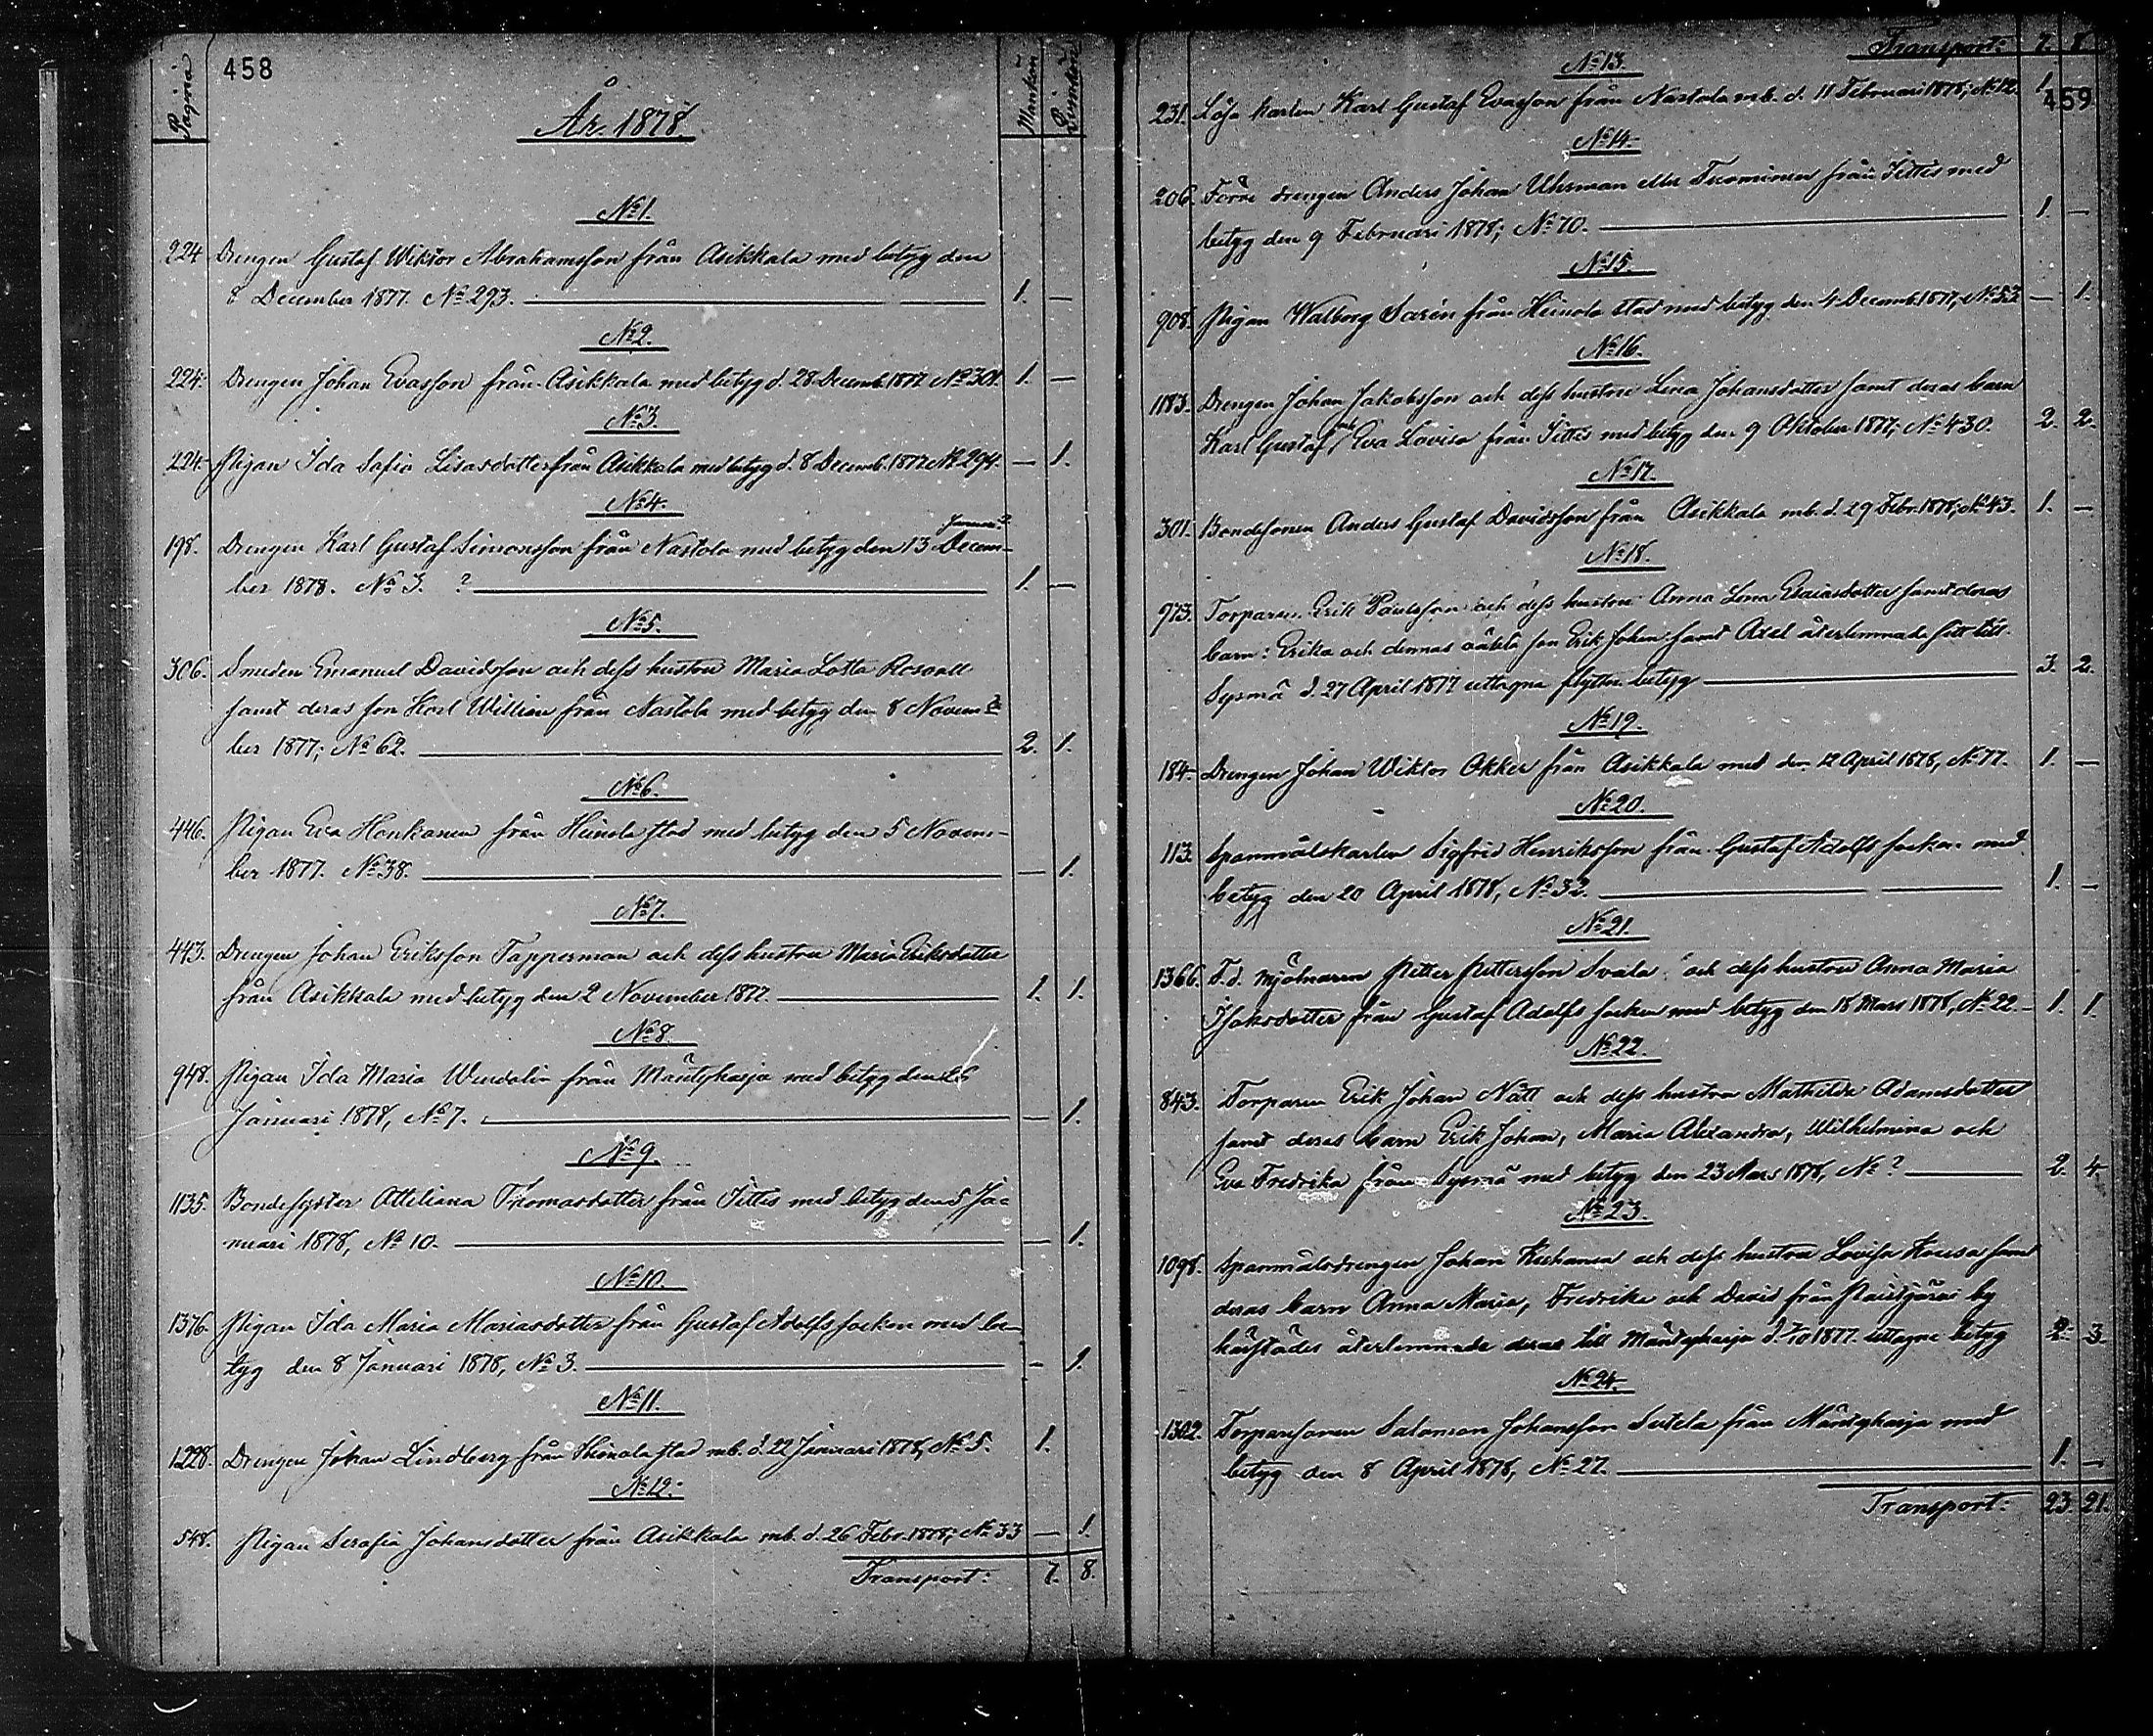 458
Pagina
Mankön
Qvinkön
År 1878
No 1.
224 Drengen Gustaf Wiktor Abrahamsson från Asikkala med betyg den
8 December 1877. No 293. 1. —
No 2.
224. Drengen Johan Evasson från Asikkala med betyg d. 28 Decemb. 1877 No 301. 1. —
No 3.
224. Pigan Ida Sofia Lisasdotter från Asikkala med betyg d. 8 Decemb. 1877 No 294. — 1.
No 4.
Januari?
198. Drengen Karl Gustaf Simonsson från Nastola med betyg den 13 Decem-
ber 1878. No 3. ? 1. —
No 5.
306. Smeden Emanuel Davidsson och dess hustru Maria Lotta Rosvall
samt deras son Karl William från Nastola med betyg den 8 Novem-
ber 1877; No 62. 2. 1.
No 6.
446. Pigan Eva Honkanen från Heinola stad med betyg den 5 Novem-
ber 1877. No 38. — 1.
No 7.
443. Drengen Johan Eriksson Tapperman och dess hustru Maria Eriksdotter
från Asikkala med betyg den 2 November 1877. 1. 1.
No 8
948. Pigan Ida Maria Windolin från Mäntyharju med betyg den 26
Januari 1878, No 7. — 1.
No 9.
1135. Bondesyster Otteliana Thomasdotter från Jittis med betyg den 5 Ja-
nuari 1878, No 10. — 1.
No 10.
1376. Pigan Ida Maria Mariasdotter från Gustaf Adolfs socken med be-
tyg den 8 Januari 1878, No 3. — 1.
No 11.
1228. Drengen Johan Lindberg från Heinola stad mb. d. 22 Januari 1878, No 5. 1.
No 12.
548. Pigan Serafia Johansdotter från Asikkala mb. d. 26 Febr. 1878; No 33 — 1.
Transport: 7. 8.
Transport: 7. 8
No 13.
459
231. Lösa karlen Karl Gustaf Evasson från Nastola mb. d. 11 Februari 1878; No 12. 1.
No 14.
206. Förre drengen Anders Johan Uhrman eller Tuominen från Jittis med
betyg den 9 Februari 1878; No 70. 1. —
No 15.
908. Pigan Walborg Sarén från Heinola stad med betyg den 4 Decemb. 1877, No 53 — 1.
No 16.
1183. Drengen Johan Jakobsson och dess hustru Lena Johansdotter samt deras barn
Karl Gustaf och Eva Lovisa från Jittis med betyg den 9 Oktober 1877; No 430. 2. 2.
No 17.
301. Bondesonen Anders Gustaf Davidsson från Asikkala mb. d. 29 Febr. 1878; No 43. 1. —
No 18.
973. Torparen Erik Paulsson och dess hustru Anna Lena Esaiasdotter samt deras
barn: Erika och dennas oäkta son Erik Johan samt Axel återlemnade sitt till
Sysmä d. 27 April 1877 uttagna flyttn. betyg 3. 2.
No 19.
184. Drengen Johan Wiktor Okker från Asikkala med den 12 April 1878, No 77. 1. —
No 20.
113. Spanmålskarlen Sigfrid Henriksson från Gustaf Adolfs socken med
betyg den 20 April 1878, No 32. 1. —
No 21.
1366. F. d. mjölnaren Petter Pettersson Svala och dess hustru Anna Maria
Isaksdotter från Gustaf Adolfs socken med betyg den 18 Mars 1878, No 22. 1. 1.
No 22.
843. Torparen Erik Johan Nått och dess hustru Mathilda Adamsdotter
samt deras barn Erik Johan, Maria Alexandra, Wilhelmina och
Eva Fredrika från Sysmä med betyg den 23 Mars 1878, No ? 2. 4.
No 23.
1098. Spanmålsdrengen Johan Kuhanen och dess hustru Lovisa Kousa samt
deras barn Anna Maria, Fredrika och David från by
härstädes återlemnade deras till Mäntyharju d. 7/10 1877. uttagne betyg 2. 3.
No 24.
1302. Torparsonen Salomon Johansson Sutela från Mäntyharju med
betyg den 8 April 1878, No 27. 1. —
Transport: 23. 21.